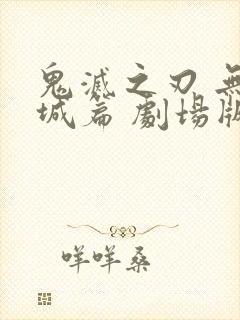 鬼滅之刃 無
城篇 劇場版
咩咩桑